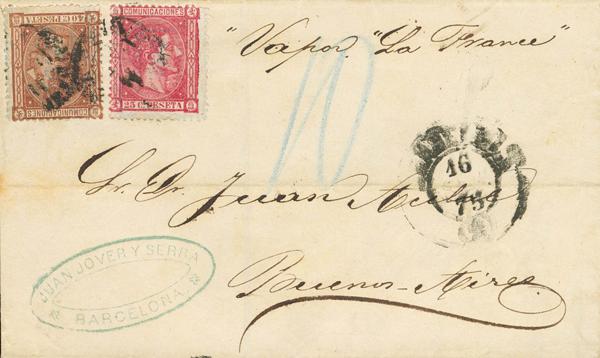 40 C. PESETA
COMUNICACIONES
COMUNICACIONES
25 C. PESETA
"Vapor "La France"
10
16
75
Sr. Dr. Juan
Buenos-Aires
JUAN JOVER Y SERRA
BARCELONA